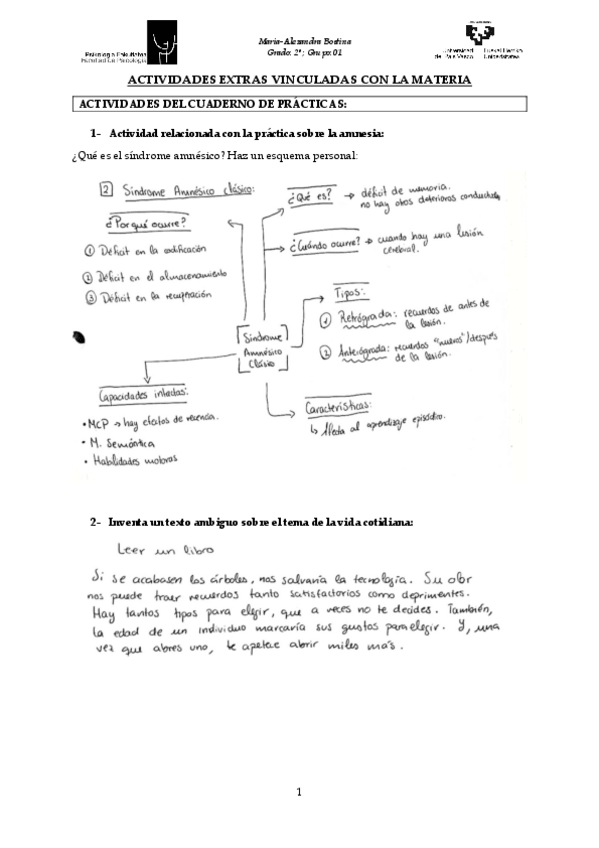 Psikologia Fakultatea
Facultad de Psicología
Maria-Alexandra Bostina
Grado: 2º; Grupo: 01
Universidad del País Vasco
Euskal Herriko Unibertsitatea
ACTIVIDADES EXTRAS VINCULADAS CON LA MATERIA
ACTIVIDADES DEL CUADERNO DE PRÁCTICAS:
1- Actividad relacionada con la práctica sobre la amnesia:
¿Qué es el síndrome amnésico? Haz un esquema personal:
2 Síndrome Amnésico clásico:
¿Qué es? → déficit de memoria.
no hay otros deterioros conductuales
¿Por qué ocurre?
① Déficit en la codificación
② Déficit en el almacenamiento
③ Déficit en la recuperación
¿Cuándo ocurre? → cuando hay una lesión
cerebral.
Tipos:
① Retrógrada: recuerdos de antes de
la lesión.
② Anterógrada: recuerdos "nuevos"/después
de la lesión.
Síndrome
Amnésico
Clásico
Capacidades intactas:
• MCP → hay efectos de recencia.
• M. Semántica
• Habilidades motoras
Características:
↳ Afecta al aprendizaje episódico.
2- Inventa un texto ambiguo sobre el tema de la vida cotidiana:
Leer un libro
Si se acabasen los árboles, nos salvaría la tecnología. Su olor
nos puede traer recuerdos tanto satisfactorios como deprimentes.
Hay tantos tipos para elegir, que a veces no te decides. También,
la edad de un individuo marcaría sus gustos para elegir. Y, una
vez que abres uno, te apetece abrir miles más.
1